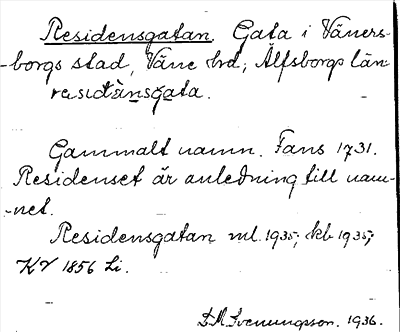 Residensgatan. Gata i Väners-
-borgs stad, Väne hd, Älfsborgs län
residänsgata.
Gammalt namn. Fans 1731.
Residenset är anledning till nam-
-net.
Residensgatan ml. 1935, kb 1935,
KV 1856 Li.
D. A. Svenungsson. 1936.